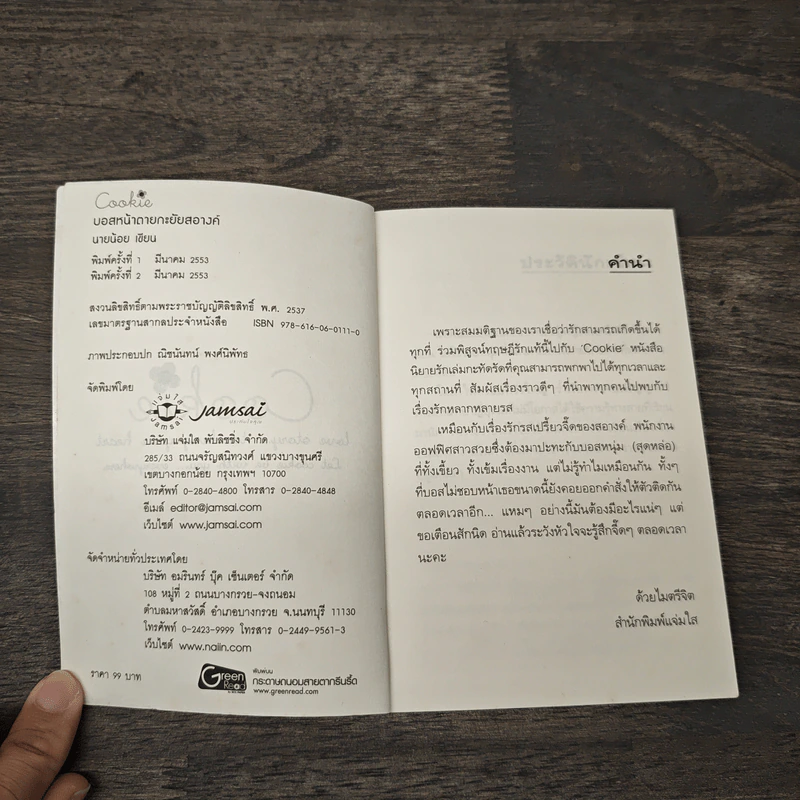 Cookie
บอสหน้าตายกะยัยสอางค์
นายน้อย เขียน
พิมพ์ครั้งที่ 1 มีนาคม 2553
พิมพ์ครั้งที่ 2 มีนาคม 2553
สงวนลิขสิทธิ์ตามพระราชบัญญัติลิขสิทธิ์ พ.ศ. 2537
เลขมาตรฐานสากลประจำหนังสือ ISBN 978-616-06-0111-0
ภาพประกอบปก ณิชนันทน์ พงศ์นิพัทธ
จัดพิมพ์โดย
แจ่มใส
Jamsai
Jamsai
บริษัท แจ่มใส พับลิชชิ่ง จำกัด
285/33 ถนนจรัญสนิทวงศ์ แขวงบางขุนศรี
เขตบางกอกน้อย กรุงเทพฯ 10700
โทรศัพท์ 0-2840-4800 โทรสาร 0-2840-4848
อีเมล์ editor@jamsai.com
เว็บไซต์ www.jamsai.com
จัดจำหน่ายทั่วประเทศโดย
บริษัท อมรินทร์ บุ๊ค เซ็นเตอร์ จำกัด
108 หมู่ที่ 2 ถนนบางกรวย-จงถนอม
ตำบลมหาสวัสดิ์ อำเภอบางกรวย จ.นนทบุรี 11130
โทรศัพท์ 0-2423-9999 โทรสาร 0-2449-9561-3
เว็บไซต์ www.naiin.com
ราคา 99 บาท
Green Read
พิมพ์บน
กระดาษถนอมสายตากรีนรี้ด
www.greenread.com
คำนำ
เพราะสมมติฐานของเราเชื่อว่ารักสามารถเกิดขึ้นได้
ทุกที่ ร่วมพิสูจน์ทฤษฎีรักแท้นี้ไปกับ 'Cookie' หนังสือ
นิยายรักเล่มกะทัดรัดที่คุณสามารถพกพาไปได้ทุกเวลาและ
ทุกสถานที่ สัมผัสเรื่องราวดีๆ ที่นำพาทุกคนไปพบกับ
เรื่องรักหลากหลายรส
เหมือนกับเรื่องรักรสเปรี้ยวจี๊ดของสอางค์ พนักงาน
ออฟฟิศสาวสวยซึ่งต้องมาปะทะกับบอสหนุ่ม (สุดหล่อ)
ที่ทั้งเขี้ยว ทั้งเข้มเรื่องงาน แต่ไม่รู้ทำไมเหมือนกัน ทั้งๆ
ที่บอสไม่ชอบหน้าเธอขนาดนี้ยังคอยออกคำสั่งให้ตัวติดกัน
ตลอดเวลาอีก... แหมๆ อย่างนี้มันต้องมีอะไรแน่ๆ แต่
ขอเตือนสักนิด อ่านแล้วระวังหัวใจจะรู้สึกจี๊ดๆ ตลอดเวลา
นะคะ
ด้วยไมตรีจิต
สำนักพิมพ์แจ่มใส